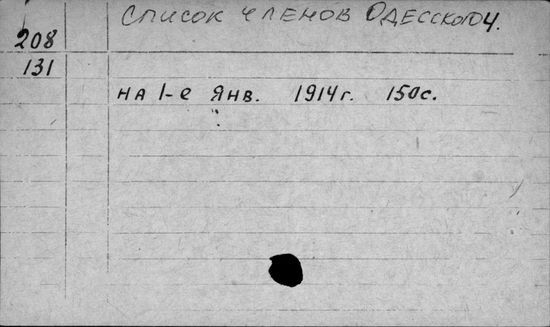 Список членов Одесского
208
131
на 1-е Янв. 1914г. 150с.